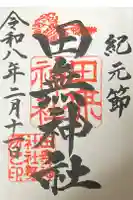 紀元節
田無神社
令和八年二月十一日